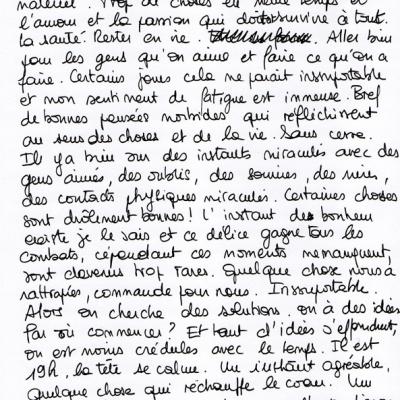 matériel. Trop de choses en même temps et
l'amour et la passion qui doit survivre à tout.
La santé. Rester en vie. Aller bien
pour les gens qu'on aime et faire ce qu'on a
faire. Certains jours cela me parait insuportable
et mon sentiment de fatigue est immense. Bref
de bonnes pensées morbides qui réflichirent
au sens des choses et de la vie. Sans cesse.
Il y a bien sur des instants miraculés avec des
gens aimés, des oublis, des sourires, des rires,
des contacts physiques miraculés. Certaines choses
sont drôlement bonnes ! L'instant de bonheur
existe je le sais et ce délice gagne tous les
combats, cependant ces moments me manquent,
sont devenus trop rares. Quelque chose nous a
rattrapés, commande pour nous. Insuportable.
Alors on cherche des solutions. on a des idées
Par où commencer ? Et tant d'idées s'effondrent,
on est moins crédules avec le temps. Il est
19h, la tête se calme. Un instant agréable,
quelque chose qui réchauffe le coeur. Un